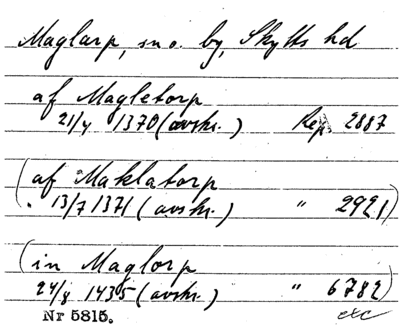 Maglarp, sn o. by, Skytts hd
af Magletorp
21/4 1370 (avskr.) Rep. 2887
(af Maklatorp
13/7 1371 (avskr.) " 2921)
(in Maglorp
24/8 1435 (avskr.) " 6782)
Nr 5815. exc